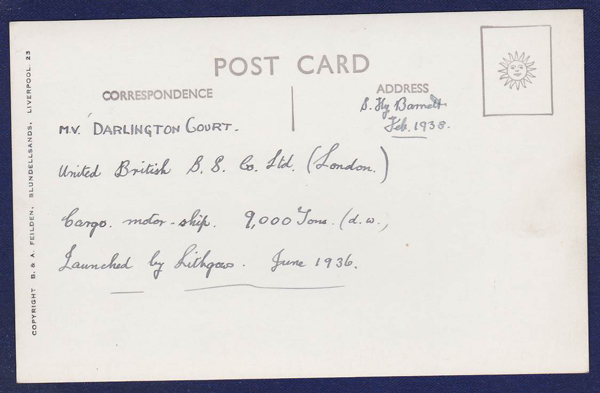 POST CARD
CORRESPONDENCE
ADDRESS
Feb. 1938.
M.V. DARLINGTON COURT.
United British S. S. Co. Ltd. (London.)
Cargo. motor-ship. 9,000 Tons. (d.w.)
Launched by Lithgows. June 1936.
COPYRIGHT B. & A. FEILDEN, BLUNDELLSANDS, LIVERPOOL. 23